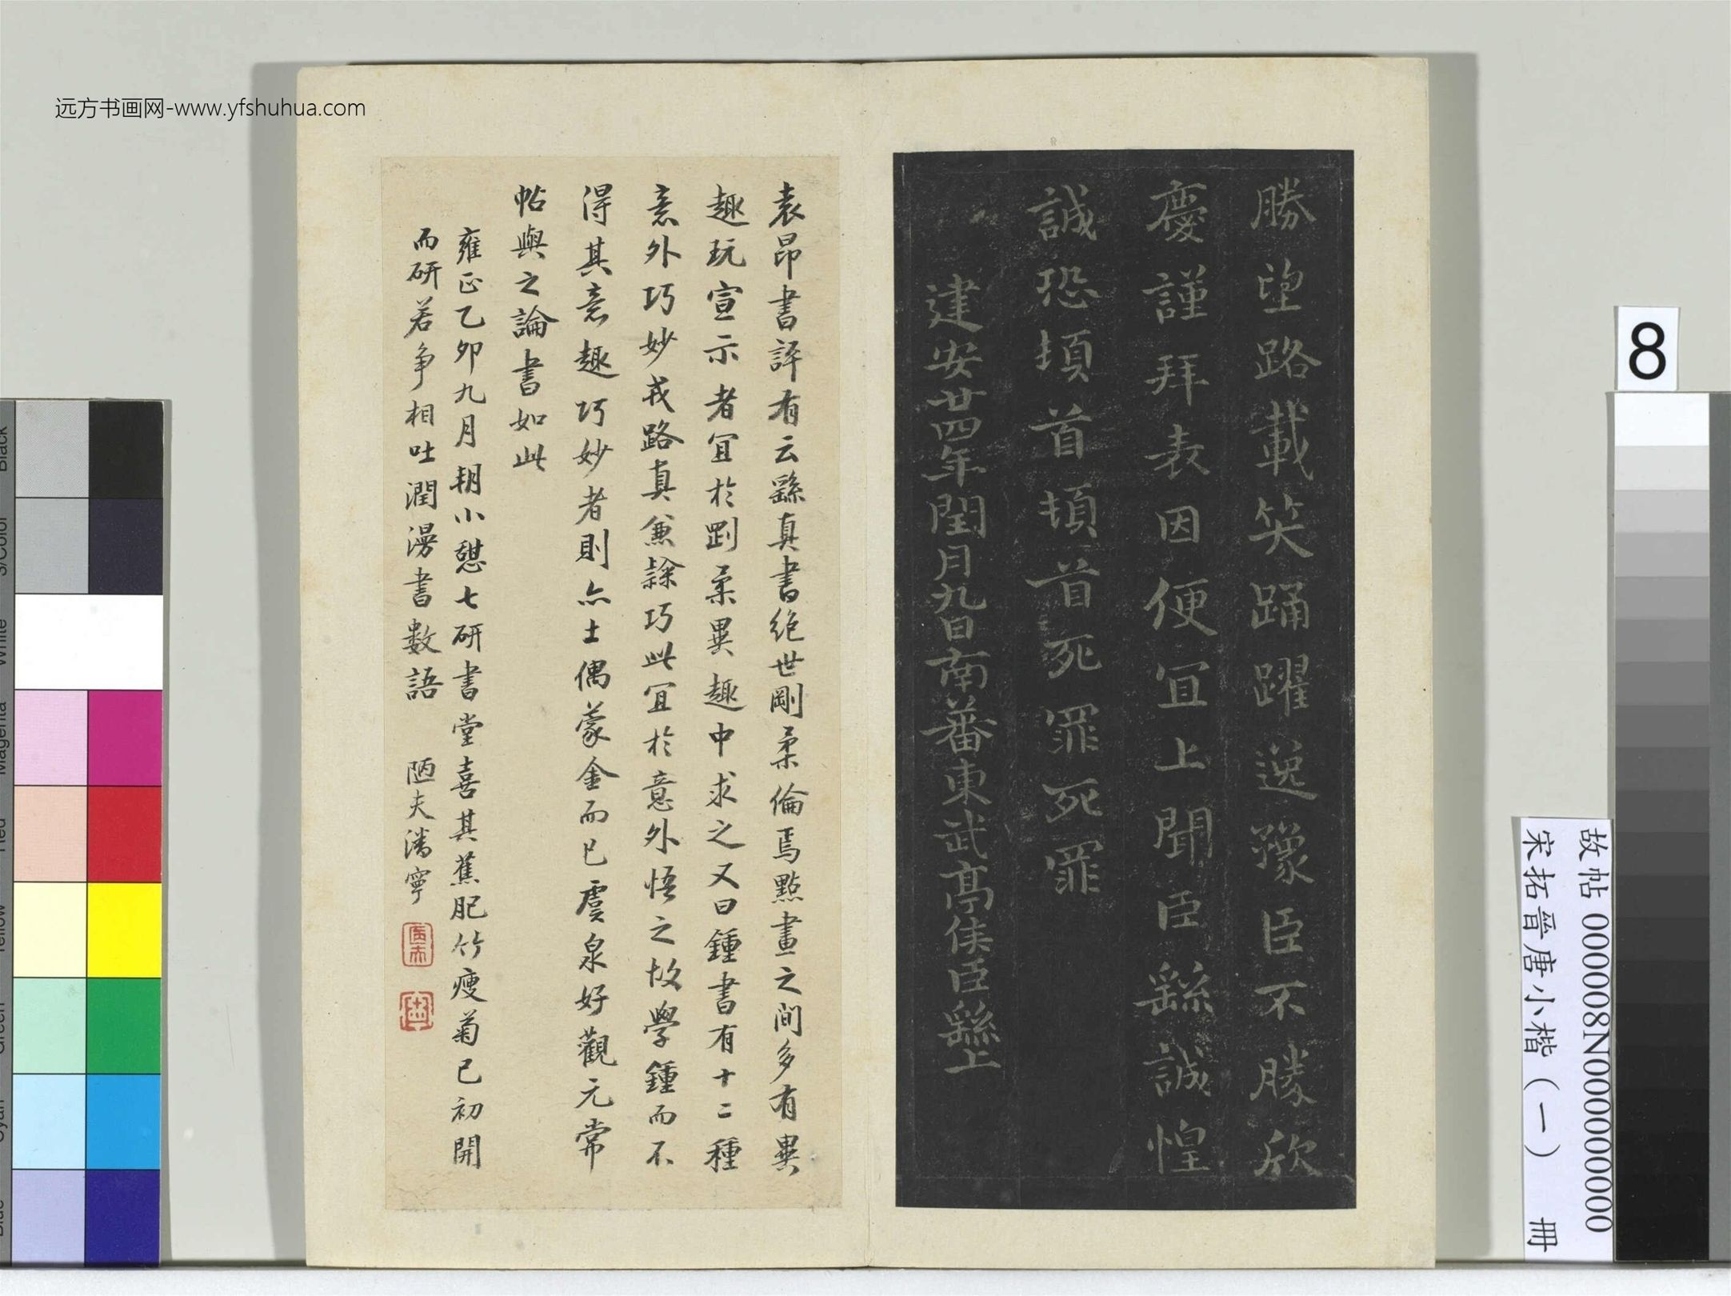 远方书画网-www.yfshuhua.com
勝望路載笑踊躍逸豫臣不勝欣
慶謹拜表因便冝上聞臣繇誠惶
誠恐頓首頓首死罪死罪
建安廿四年閏月九日南蕃東武亭侯臣繇上
袁昂書評有云繇真書絶世剛柔備焉點畫之間多有異
趣玩宣示者冝於剛柔異趣中求之又曰鍾書有十二種
意外巧妙戎路真兼隸巧此冝於意外悟之故學鍾而不
得其意趣巧妙者則亦士偶蒙金而已虞泉好觀元常
帖與之論書如此
雍正乙卯九月朔小憩七研書堂喜其蕉肥竹瘦菊已初開
而研若争相吐潤漫書數語 陋夫潘寧
8
故帖 000008N000000000
宋拓晉唐小楷(一) 冊
Black
3/Color
White
Magenta
Red
Yellow
Green
Cyan
Blue